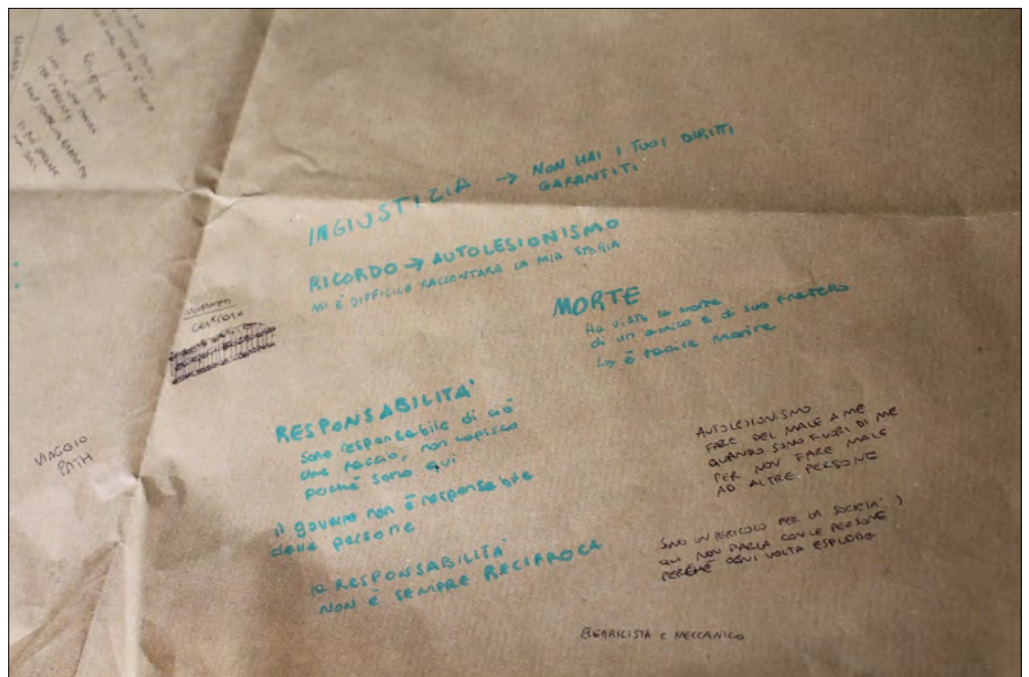 INGIUSTIZIA → NON HAI I TUOI DIRITTI
GARANTITI
RICORDO → AUTOLESIONISMO
MI È DIFFICILE RACCONTARE LA MIA STORIA
MORTE
Ha visto la morte
di un amico e di suo fratello
↳ è facile morire
CENTRALE
VIAGGIO
PATH
RESPONSABILITA'
Sono responsabile di ciò
che faccio, non capisco
perché sono qui
il governo non è responsabile
delle persone
la RESPONSABILITÀ
NON È SEMPRE RECIPROCA
AUTOLESIONISMO
FARE DEL MALE A ME
QUANDO SONO FUORI DI ME
PER NON FARE MALE
AD ALTRE PERSONE
SONO UN PERICOLO PER LA SOCIETÀ!)
QUI NON PARLA CON LE PERSONE
PERCHÉ OGNI VOLTA ESPLODE
E MECCANICO